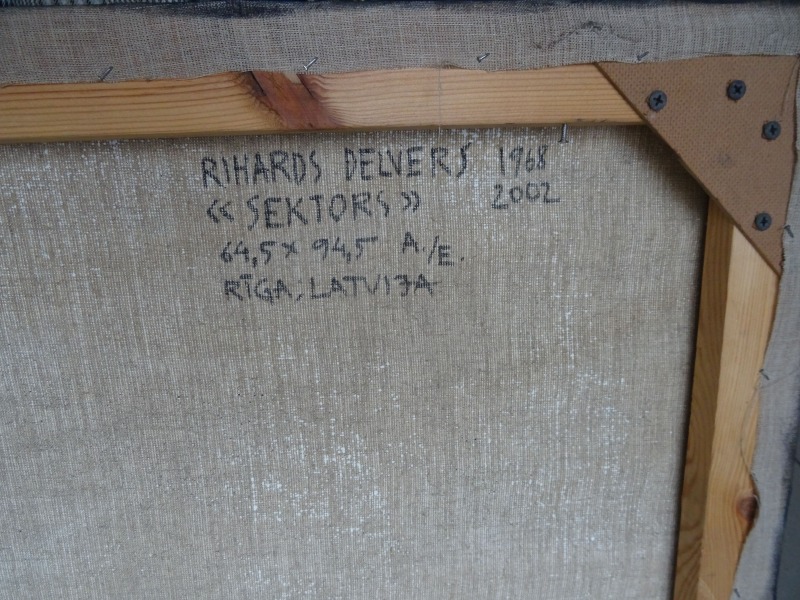 RIHARDS DELVERS 1968
«SEKTORS» 2002
64,5 x 94,5 A./E.
RĪGA, LATVIJA